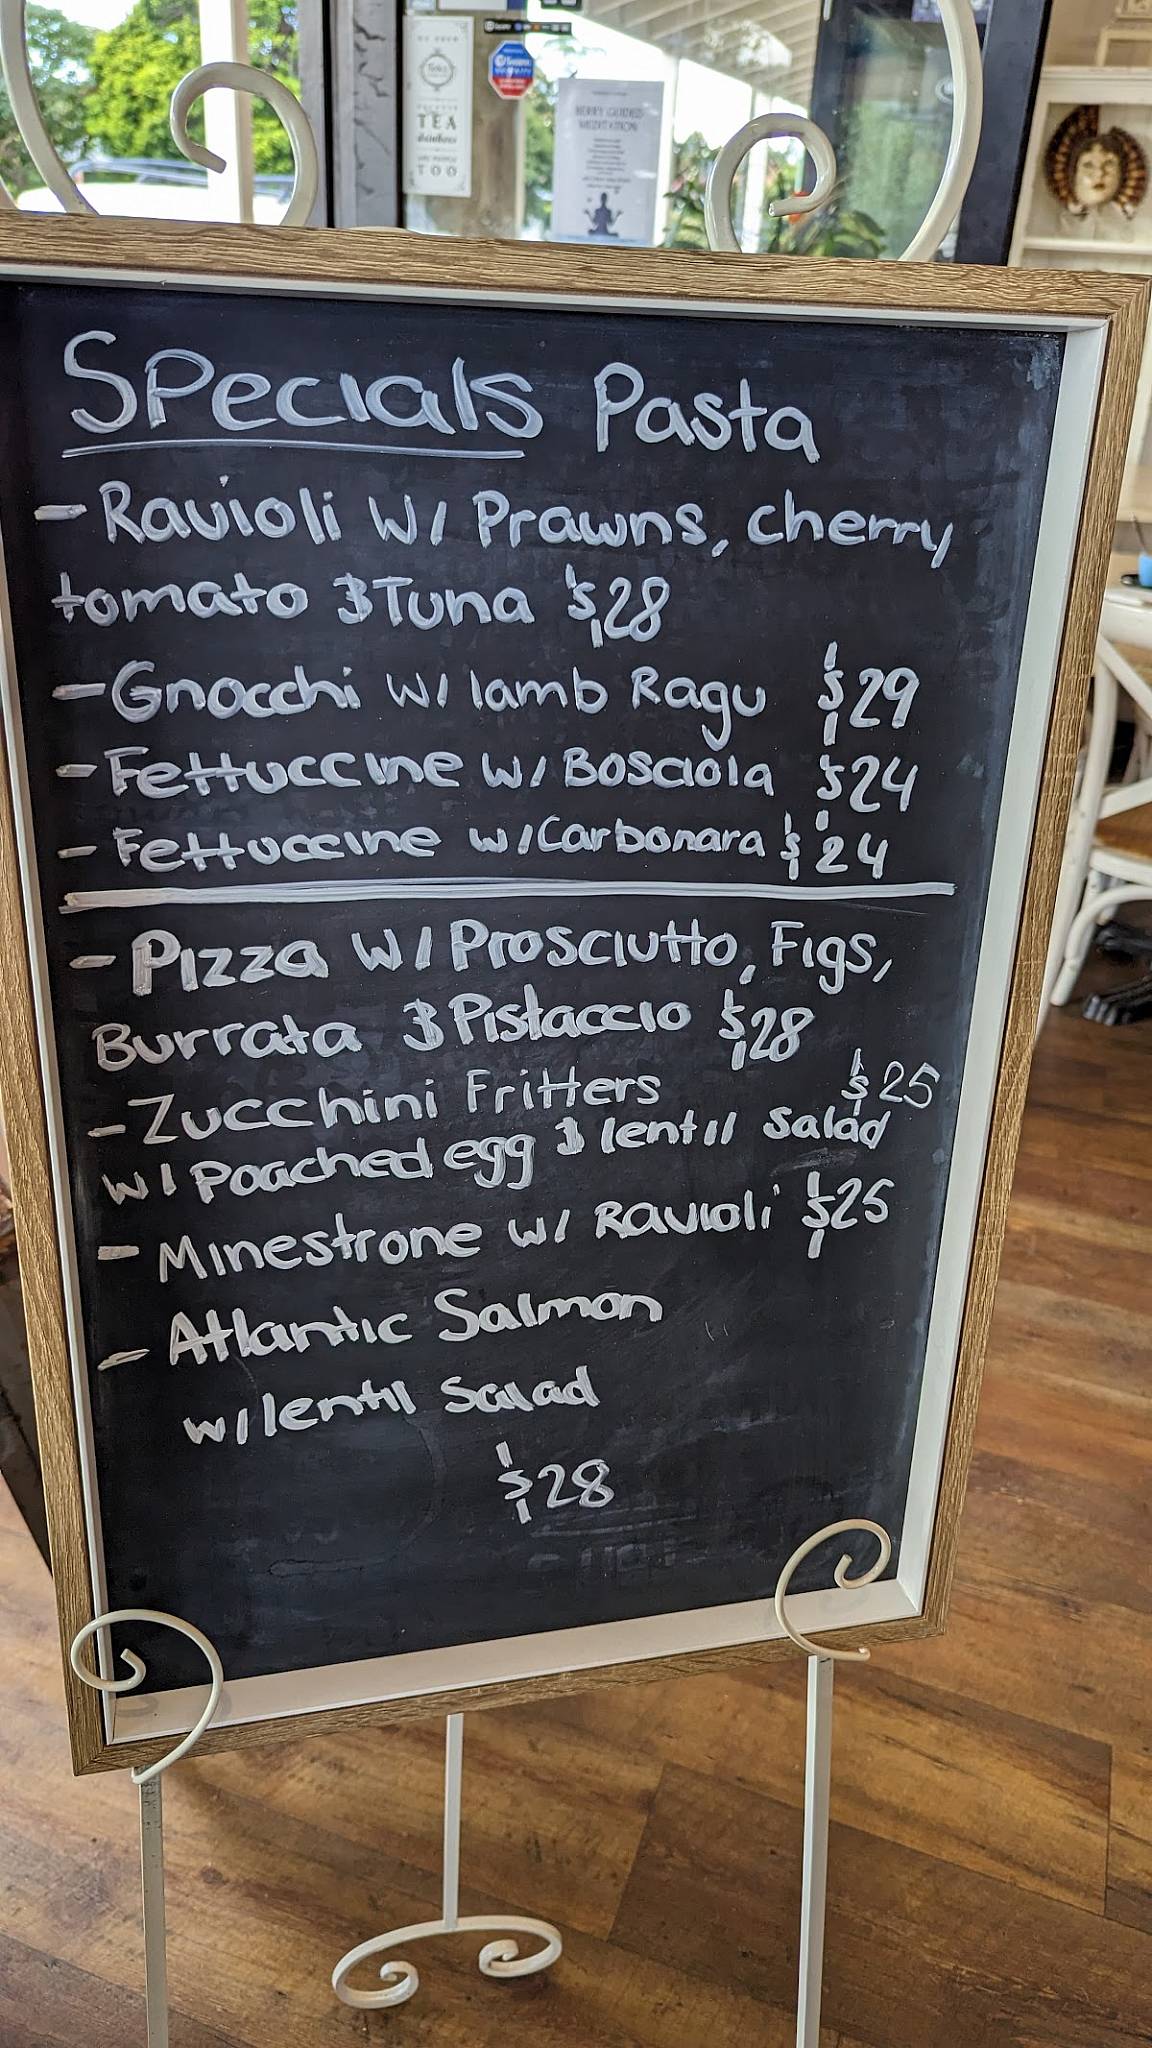 WE KNOW
TEA
drinkers
TOO
BERRY GUIDED
MEDITATION
Specials Pasta
- Ravioli w/ Prawns, cherry
tomato & Tuna $28
- Gnocchi w/ lamb Ragu $29
- Fettuccine w/ Bosciola $24
- Fettuccine w/ Carbonara $24
- Pizza w/ Prosciutto, Figs,
Burrata & Pistaccio $28
- Zucchini Fritters $25
w/ Poached egg & lentil salad
- Minestrone w/ Ravioli $25
- Atlantic Salmon
w/ lentil Salad
$28